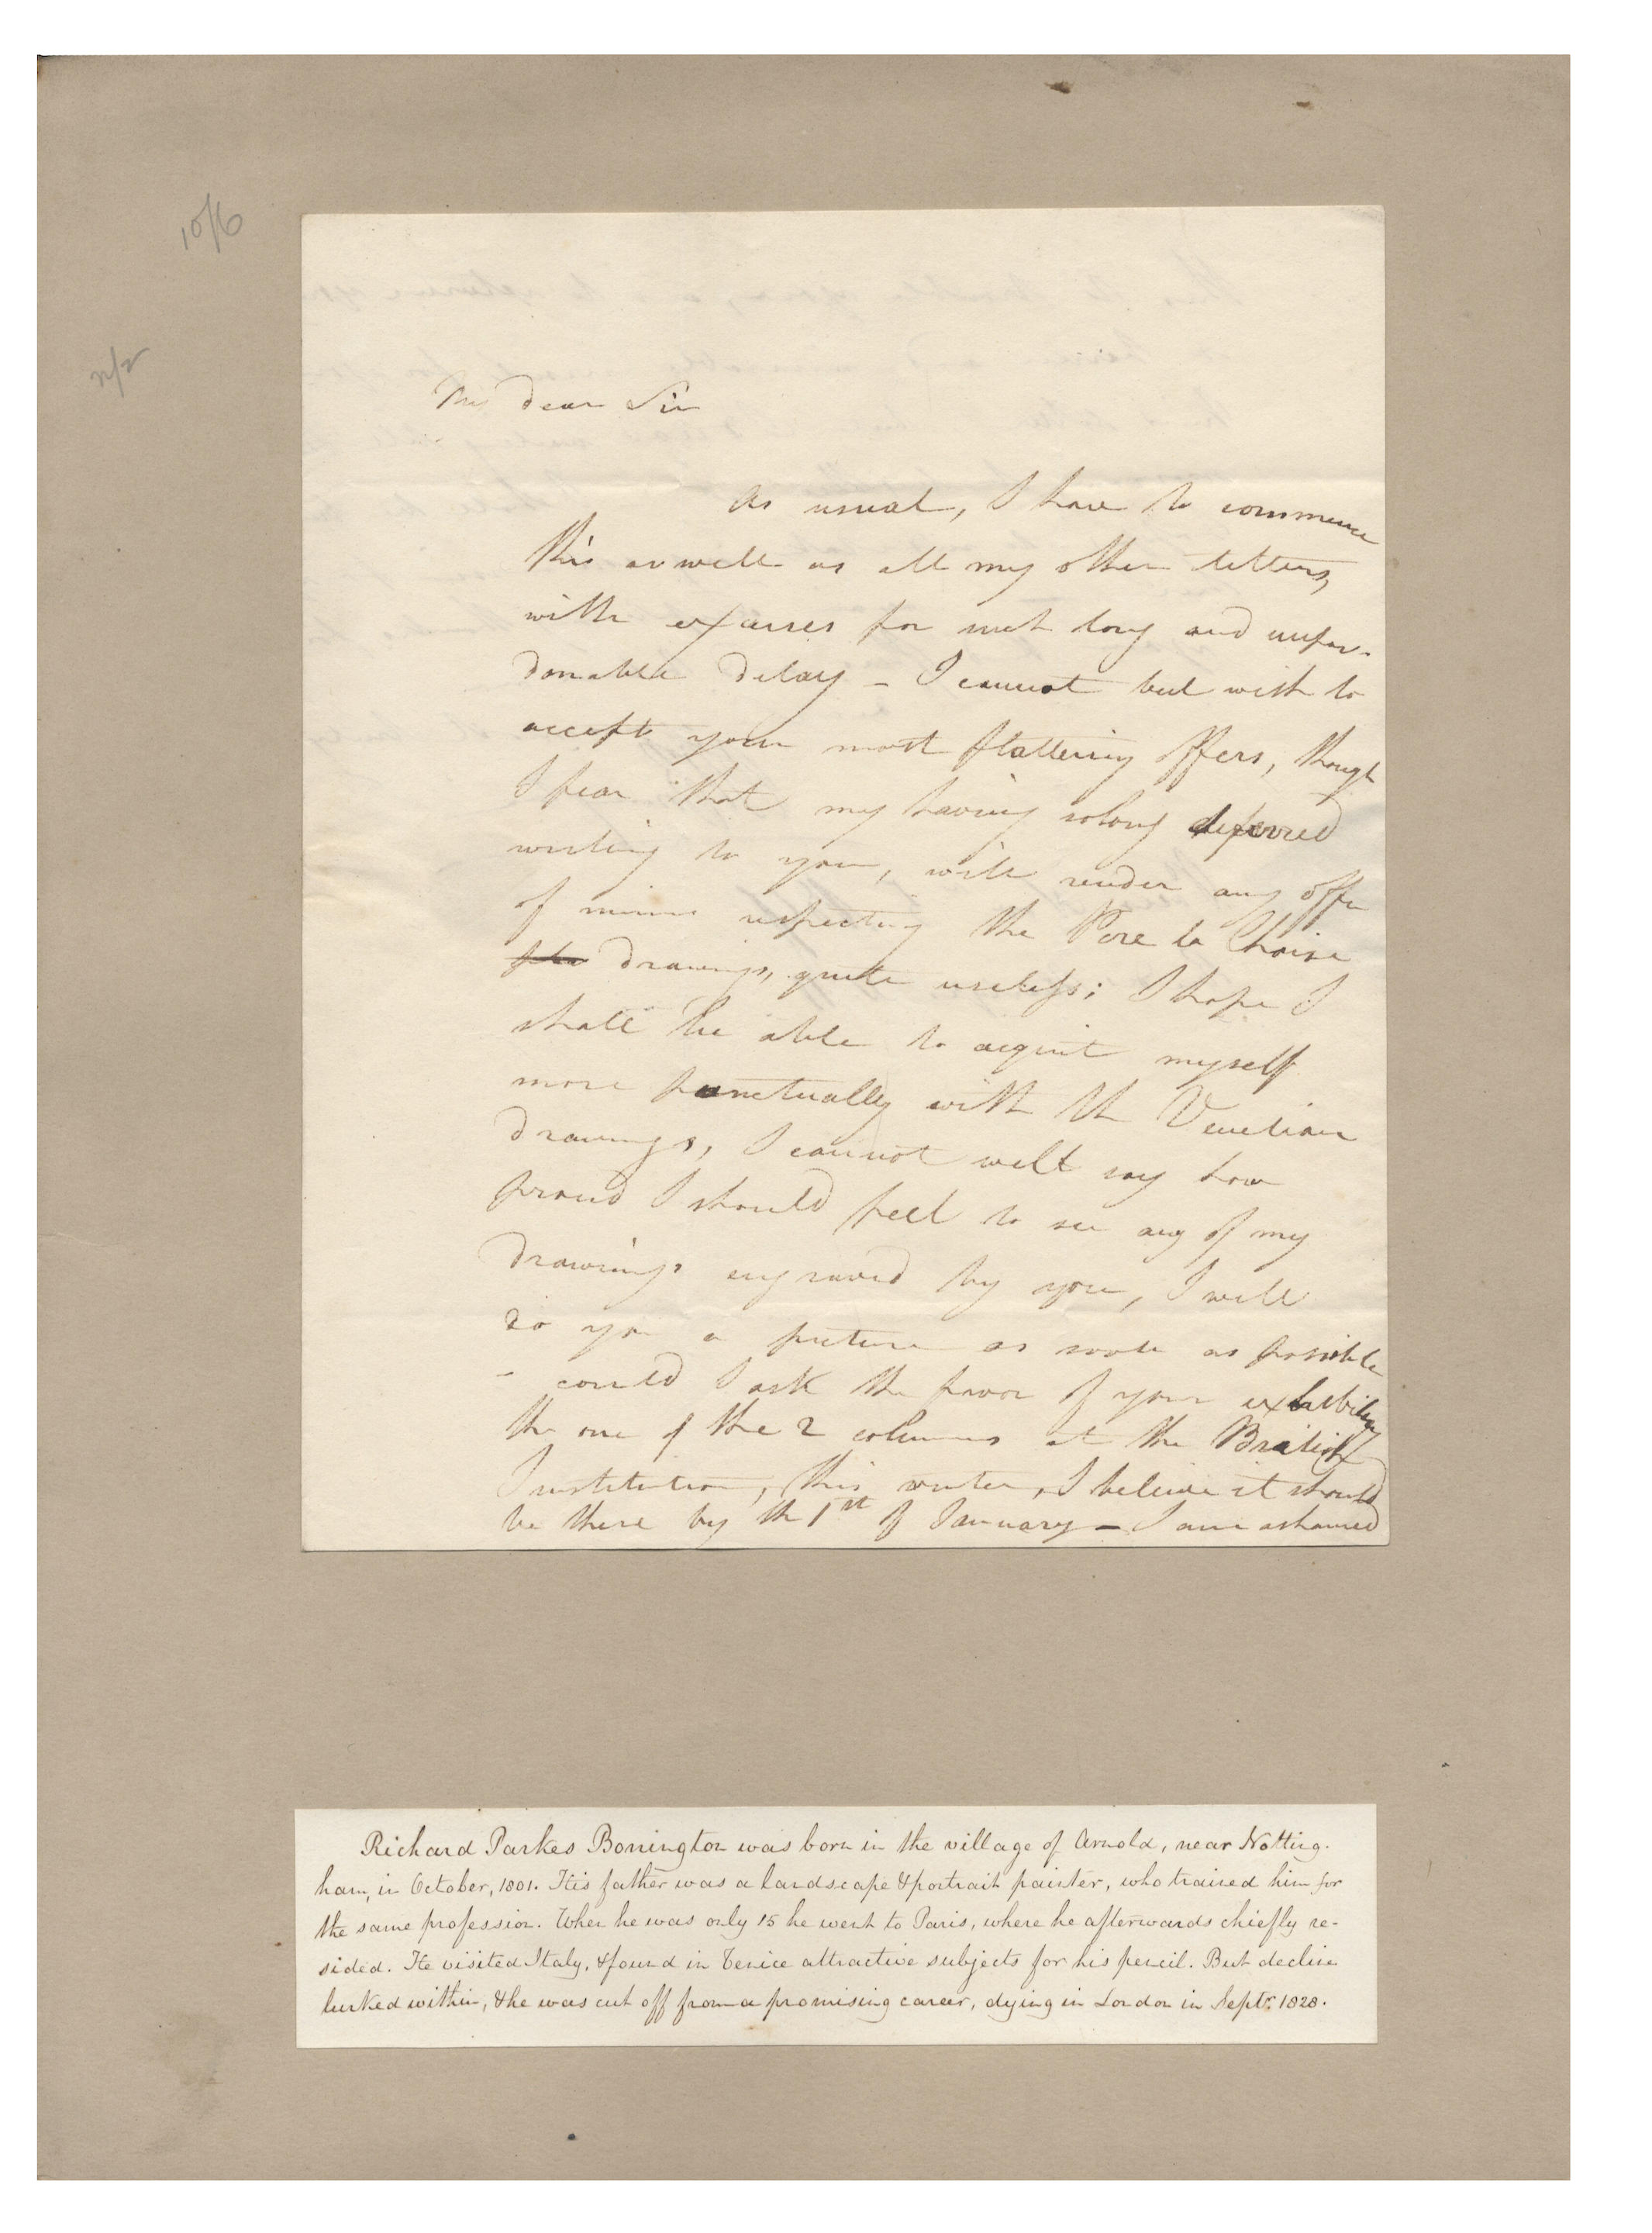 10/6
n/r
My dear Sir
As usual, I have to commence
this as well as all my other letters,
with excuses for such long and unpar-
donable delay - I cannot but wish to
accept your most flattering offers, though
I fear that my having so long deferred
writing to you, will render any offer
of mine respecting the Pere la Chaise
drawings, quite useless; I hope I
shall be able to acquit myself
more punctually with the Venetian
drawings, I cannot well say how
proud I should feel to see any of my
drawings engraved by you, I will
do you a picture as soon as possible
- could I ask the favor of your exhibiting
the one of the 2 columns at the British
Institution, this winter, I believe it should
be there by the 1st of January - I am ashamed
Richard Parkes Bonington was born in the village of Arnold, near Notting-
ham, in October, 1801. His father was a landscape & portrait painter, who trained him for
the same profession. When he was only 15 he went to Paris, where he afterwards chiefly re-
sided. He visited Italy, & found in Venice attractive subjects for his pencil. But decline
lurked within, & he was cut off from a promising career, dying in London in Septr. 1828.